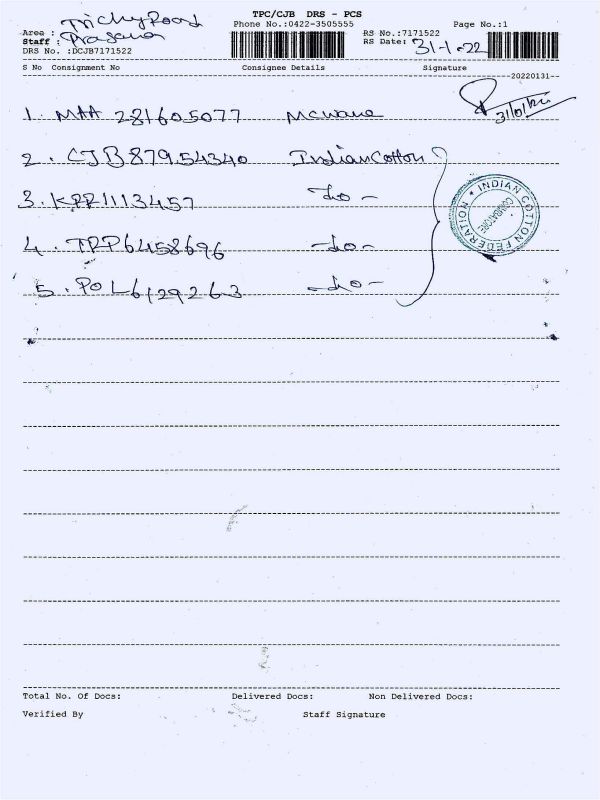 TPC/CJB DRS - PCS
Area : Trichy Road Phone No.:0422-3505555 Page No.:1
Staff : Prasana RS No.:7171522
DRS No. :DCJB7171522 RS Date: 31-1-22
S No Consignment No Consignee Details Signature
20220131
1. MAA 281605077 Mcwane 31/01/22
2. CJB 879554340 Indian Cotton
3. KRR1113457 -do-
4. TRP6458696 -do-
5. POL6129263 -do-
INDIAN COTTON FEDERATION
COIMBATORE
Total No. Of Docs: Delivered Docs: Non Delivered Docs:
Verified By Staff Signature